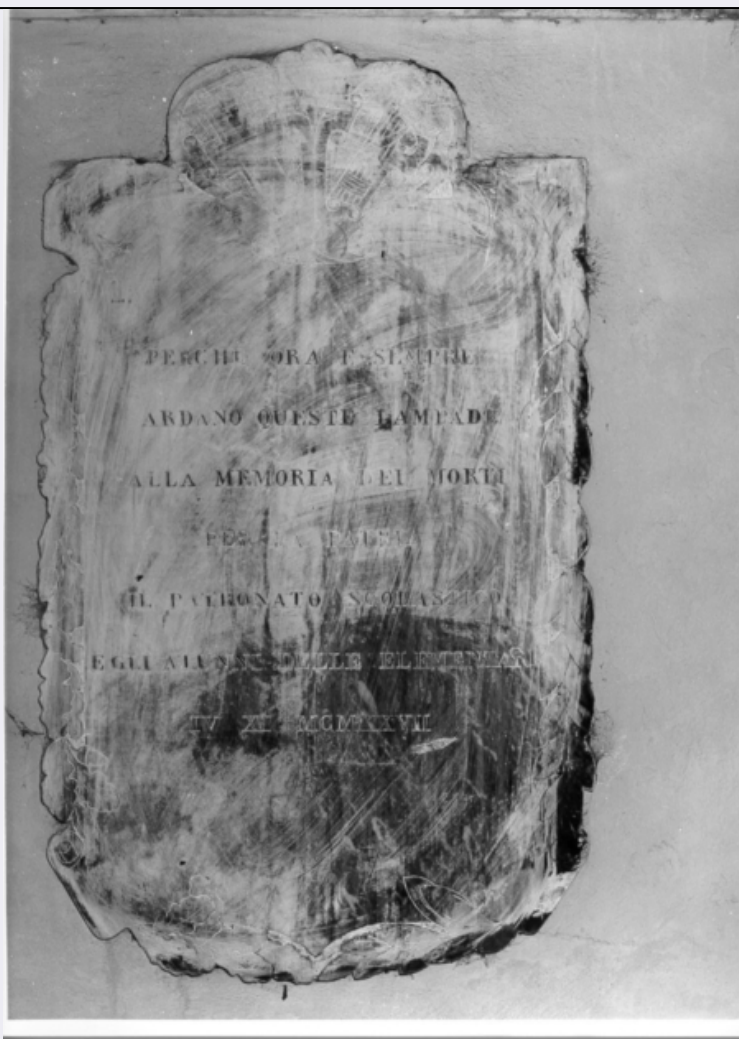 PERCHE ORA E SEMPRE
ARDANO QUESTE LAMPADE
ALLA MEMORIA DEI MORTI
PER LA PATRIA
IL PATRONATO SCOLASTICO
E GLI ALUNNI DELLE ELEMENTARI
IV XI MCMXXVII